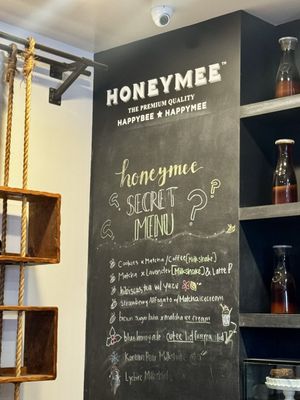 HONEYMEE™
THE PREMIUM QUALITY
HAPPYBEE ★ HAPPYMEE
honeymee
SECRET
MENU
??
Cookies & Matcha / Coffee [Milkshake]
Matcha & Lavender [Milkshake] & Latte
hibiscus tea w/
Strawberry Affogato w/ Matcha icecream
brown sugar boba & matcha ice cream
blue honeycomb
Korean Pear Milkshake
Lychee